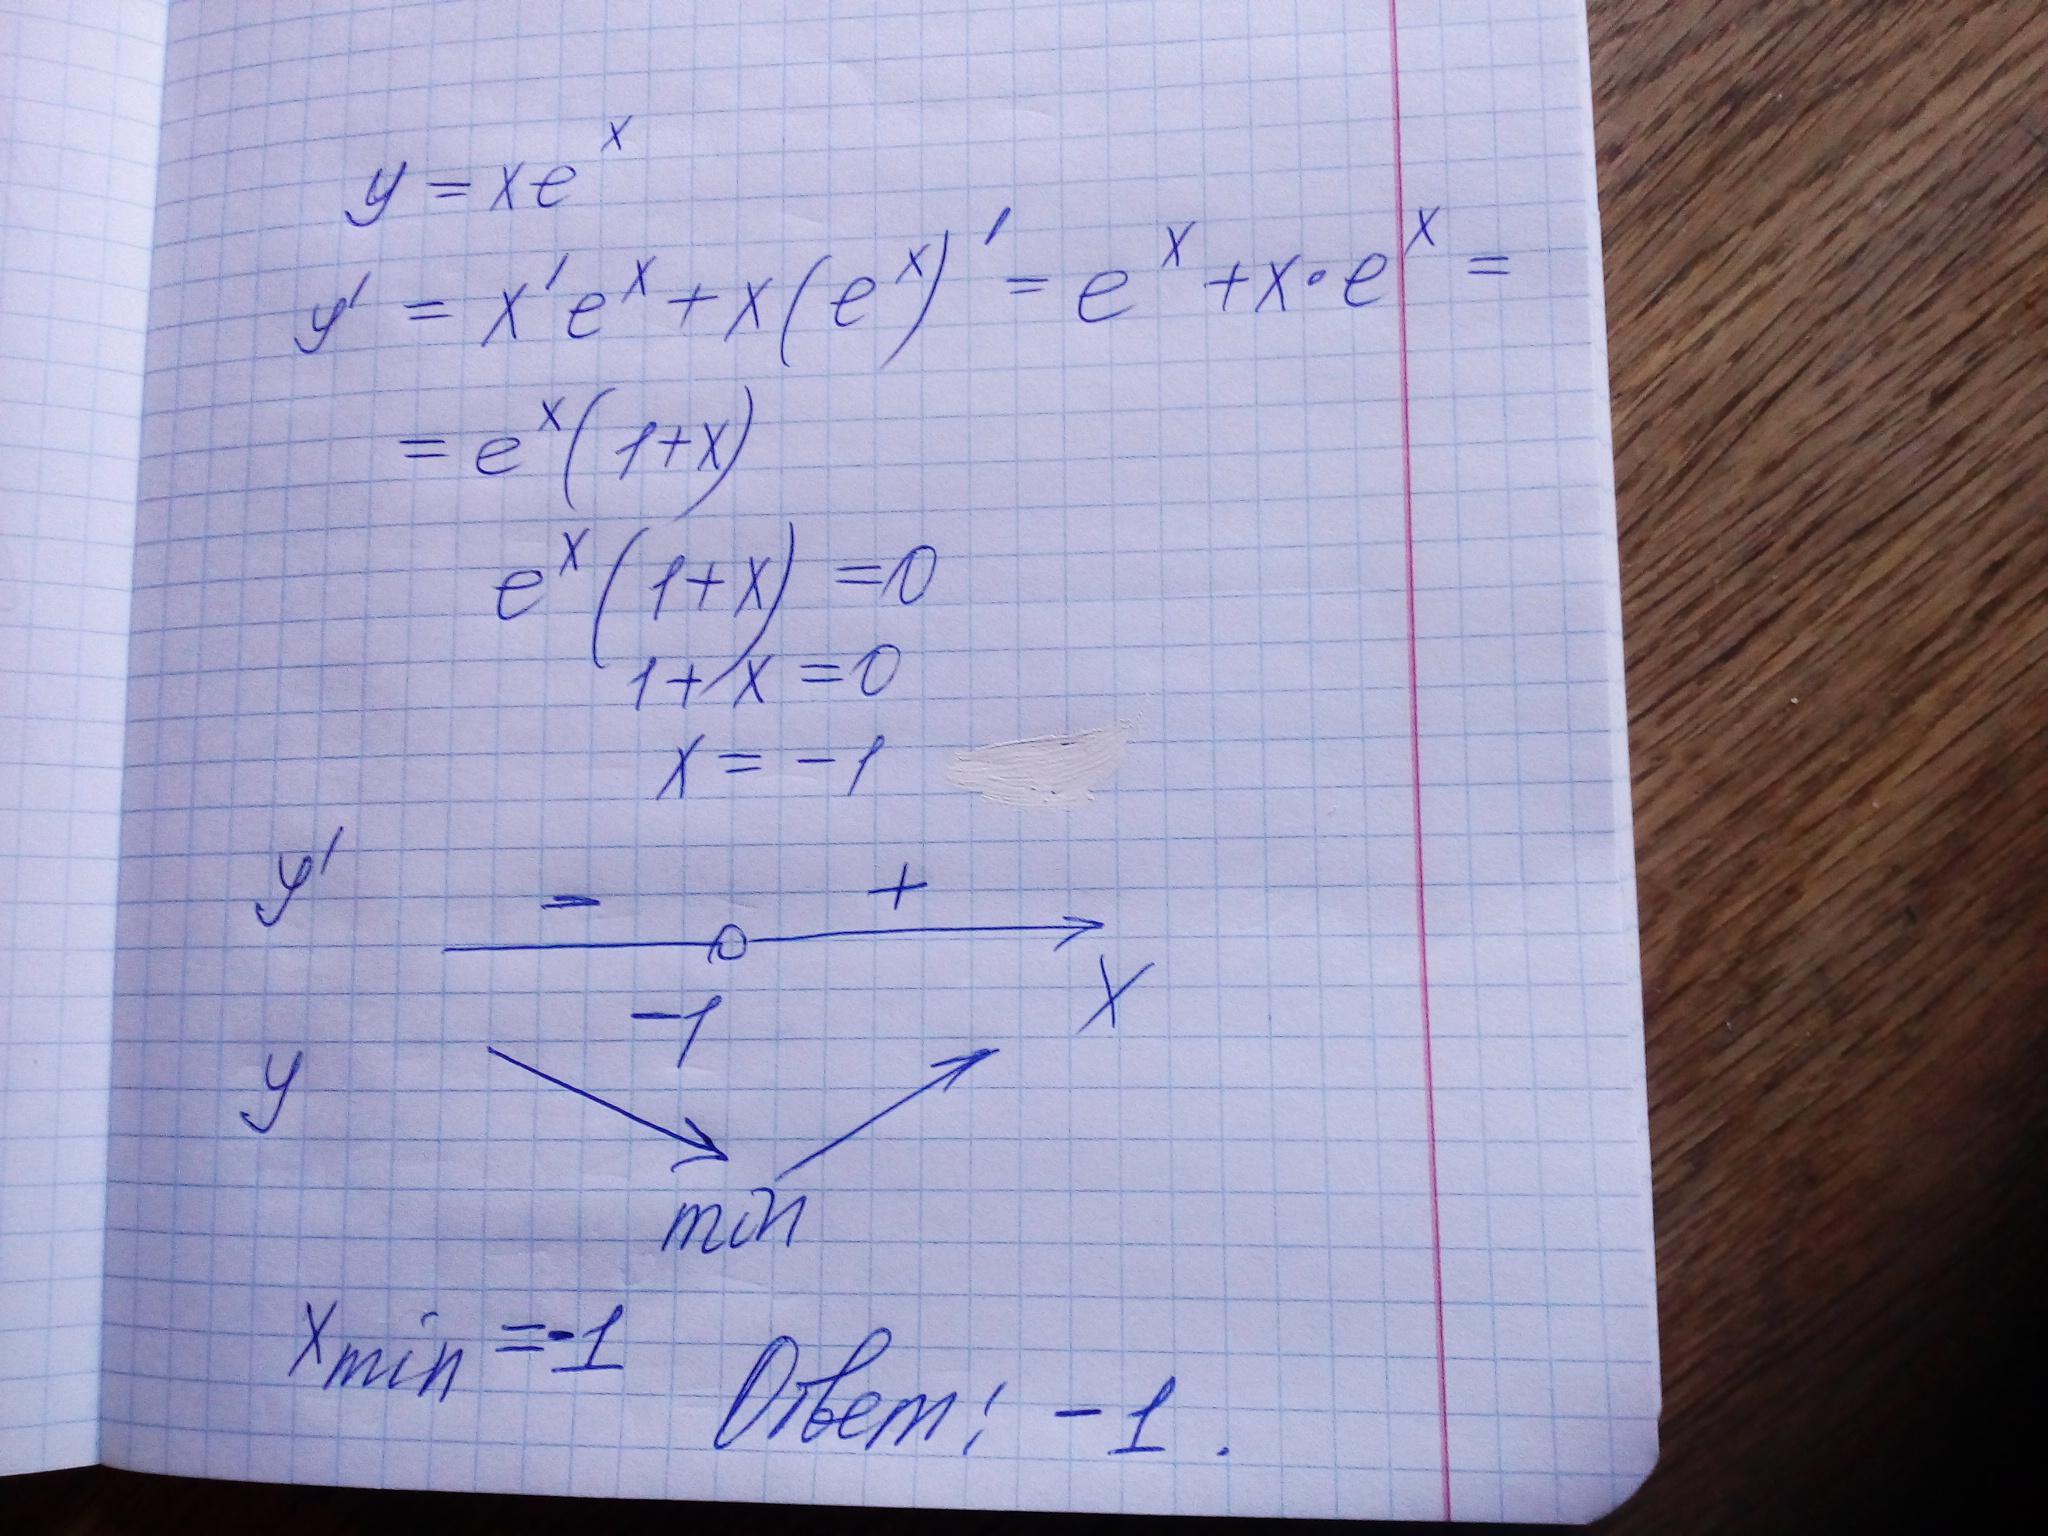 y = xe^x
y' = x'e^x + x(e^x)' = e^x + x·e^x =
= e^x(1+x)
e^x(1+x) = 0
1+x = 0
x = -1
y' - +
-1 X
y
min
x_min = -1 Ответ: -1.